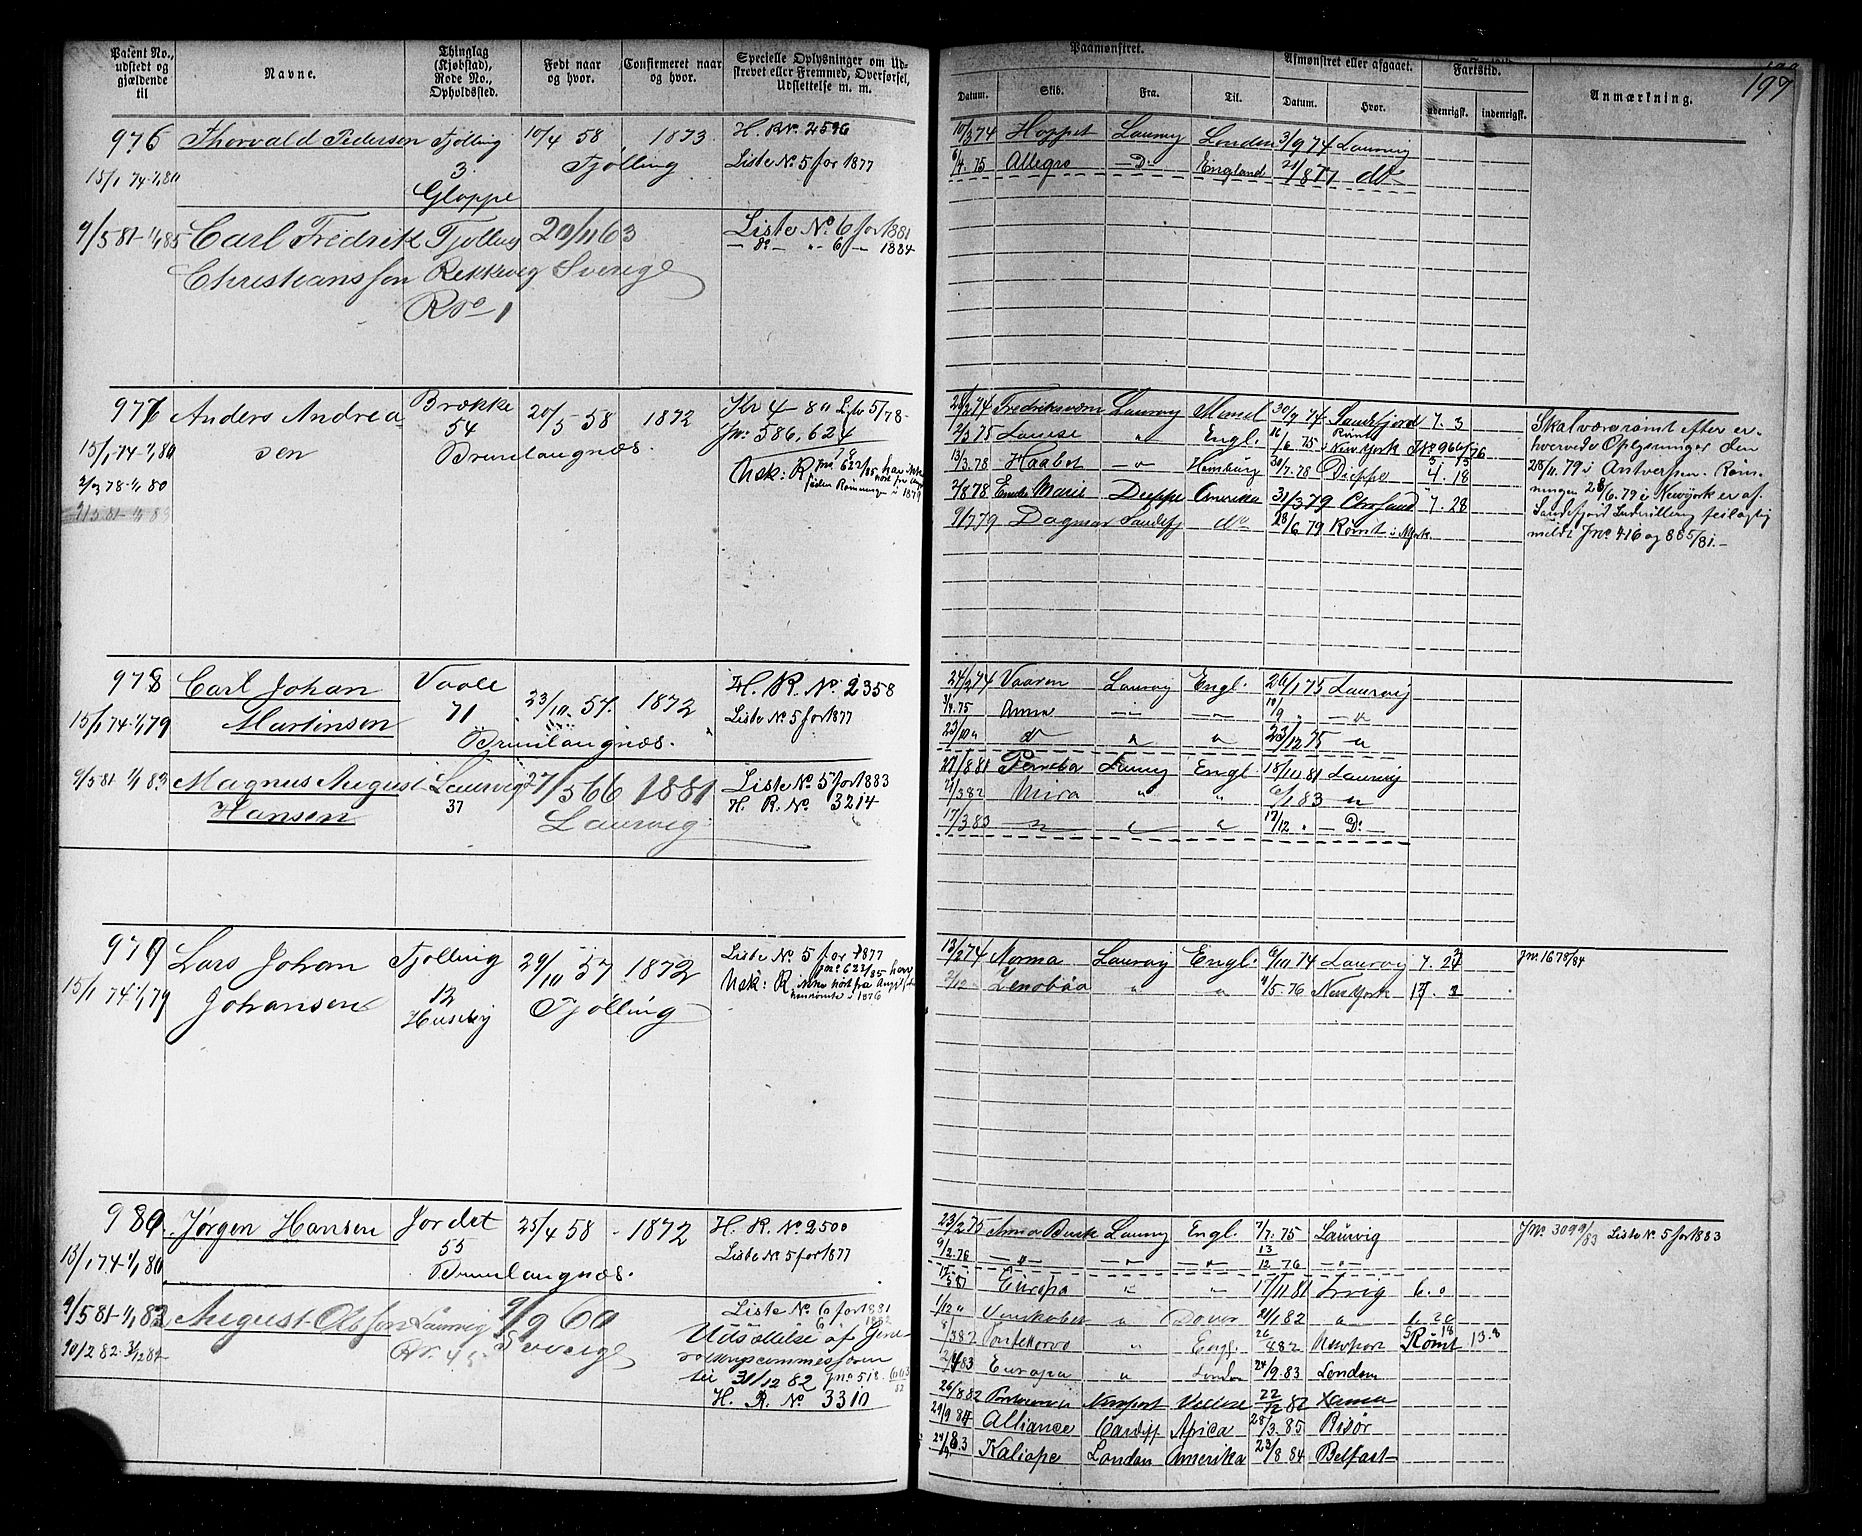 Patent No., udstedt og gjældende til
Navne.
Thinglag (Kjøbstad), Rode No., Opholdssted.
Født naar og hvor.
Confirmeret naar og hvor.
Specielle Oplysninger om Udskrevet eller Fremmed, Overførsel, Udslettelse m. m.
976 Thorvald Pedersen Tjølling 10/4 58 1873 H. R. Nr. 2596
15/1 74-1/1 80 3 Tjølling Liste No. 5 for 1877
Gloppe
9/5 81-1/1 85 Carl Fredrik Tjølling 29/11 63 Liste No. 6 for 1881
Christiansson Rekkevig Sverige - do - " 6 - 1884
Roe 1
977 Anders Andrea- Brække 20/5-58 1872 Kr 4-80 Liste 5/78-
15/1-74-1/1 80 sen 54 Jno: 586, 624
2/3 78-1/1 80 Brunlangnæs.
9/5 81-1/1 83
978 Carl Johan Vaale 23/10. 57. 1872 H. R. No. 2358
15/1 74-1/1 79 Martinsen 71 Liste No. 5 for 1877
Brunlangnæs.
9/5 81-1/1 83 Magnus August Laurvig 27/5 66 1881 Liste No. 5 for 1883
Hansen 37 Laurvig H. R. No. 3214
979 Lars Johan Tjølling 29/10 57 1872 Liste No. 5 for 1877
15/1 74-1/1 79 Johansen 12 Tjølling
Huseby
980 Jørgen Hansen Jordet 25/4 58 1872 H. R. No. 2500
13/1 74-1/1 80 55 Liste No. 5 for 1877
Brunlangnæs.
9/5 81-1/1 83 August Olsson Laurvig 9/9 60 Liste No. 6 for 1881
Sverige Udsættelse af Gene-
20/2 82-31/12 84 til 31/12 82 Jno 518
H. R. No. 3310
197
Paamønstret.
Afmønstret eller afgaaet.
Fartstid.
Anmærkning.
Datum. Skib. Fra. Til. Datum. Hvor. udenrigsk. indenrigsk.
10/3 74 Hoppet Laurvig London 3/9 74 Laurvig
6/4 75 Allegro - Do - England 21/8 77 do
Fredriksværn Laurvig 30/7 74 Sandefjord 7. 3
12/3 75 Louise " Engl. 16/6 75 Rømt i NewYork Jno 966/76
13/3.78 Haabet - " Hamburg 30/7.78 Dieppe
2/8 78 Marie Dieppe Amerika 31/3 79 Chrsand 7. 28
9/7 79 Dagmar Sandefj do 28/6 79 Rømt i NYork
Skal være rømt efter er-
hvervede Oplysninger den
28/11. 79 i Antwerpen. Røm-
ningen 28/6. 79 i Newyork er af
Sandefjord Indrulling feilagtig
meldt Jno 416 og 885/81.-
24/2 74 Vaaren Laurvig Engl. 26/1 75 Laurvig
3/4.75 Anna - " - - " - - " -
23/10 " do " " 23/12 75 "
27/8 81 Laurvig Engl 18/10 81 Laurvig
21/3 82 " " 6/1 83 "
17/3 83 - " - " " 19/12 " - Do -
13/2 74 Norma Laurvig Engl. 6/10 74 Laurvig 7. 24 Jno. 1678/84
2/12 Zenobia " " 4/5.76 NewYork 17. 2
23/2.75 Anna Laurvig Engl. 7/7.75 Laurvig Jno. 3099/83 Liste No. 5 for 1883
9/2.76 - " - - " - - " - 13/12 76 - " -
Europa " " 17/11 81 Lrvig 6. 0
1/12 " Venskabet " Dover 21/1 82 "
8/3 82 " Engl. 26/8 82 Newport Rømt 13.8
Europa " London 24/9.83 London
26/8 82 Newport 22/12 82
29/9 84 Alliance Cardiff Africa 28/3.85 Risør
Kaliope London Amerika 23/8 84 Belfast